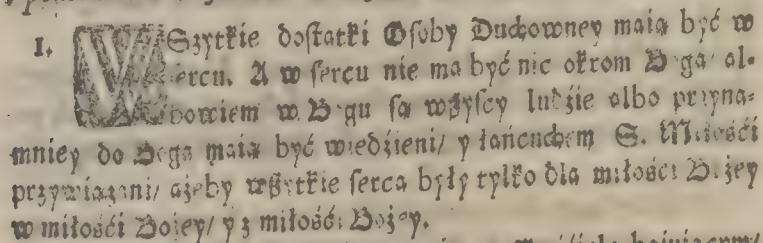 I. WSzytkie dostatki Osoby Duchowney maią być w
sercu. A w sercu nie ma być nic okrom Boga/ al-
bowiem w Bogu są wszyscy ludźie albo przyna-
mniey do Boga maią być wiedźieni/ y łańcuchem S. Miłośći
przywiązani/ ażeby wszytkie serca były tylko dla miłośći Bożey
w miłośći Bożey/ y z miłośći Bożey.